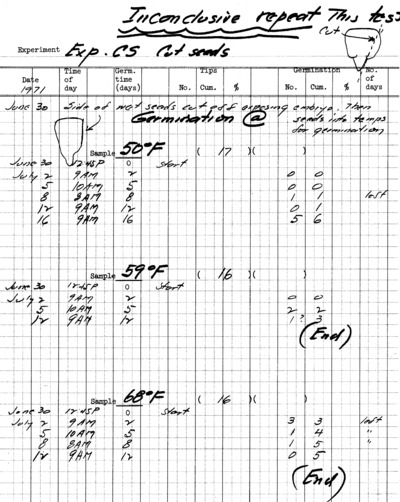 Inconclusive repeat This test
Cut
Experiment Exp. CS Cut seeds
Date 1971 Time of day Germ. time (days) Tips No. Cum. % Germination No. Cum. % No. of days
June 30 Side of wet seeds cut off exposing embryo. Then
Germination @ seeds into temps
for germination
Sample 50°F ( 17 )( )
June 30 12:45P 0 Start
July 2 9AM 2 0 0
5 10AM 5 0 0
8 8AM 8 1 1 lost
12 9AM 12 0 1
16 9AM 16 5 6
Sample 59°F ( 16 )( )
June 30 12:45P 0 Start
July 2 9AM 2 0 0
5 10AM 5 2 2
12 9AM 12 1? 3
(End)
Sample 68°F ( 16 )( )
June 30 12:45P 0 Start
July 2 9AM 2 3 3 lost
5 10AM 5 1 4 "
8 8AM 8 1 5 "
12 9AM 12 0 5
(End)